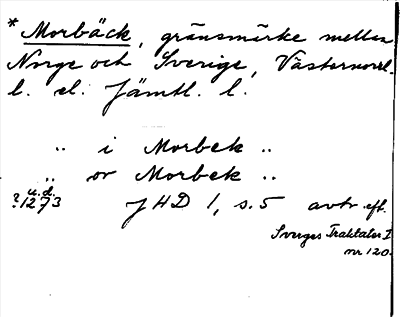 * Morbäck, gränsmärke mellan
Norge och Sverige, Västernorrl.
l. el. Jämtl. l.
.. i Morbek ..
.. or Morbek ..
u.d.
?1273 JHD 1, s. 5 avtr. eft.
Sverges Traktater I
nr 120.